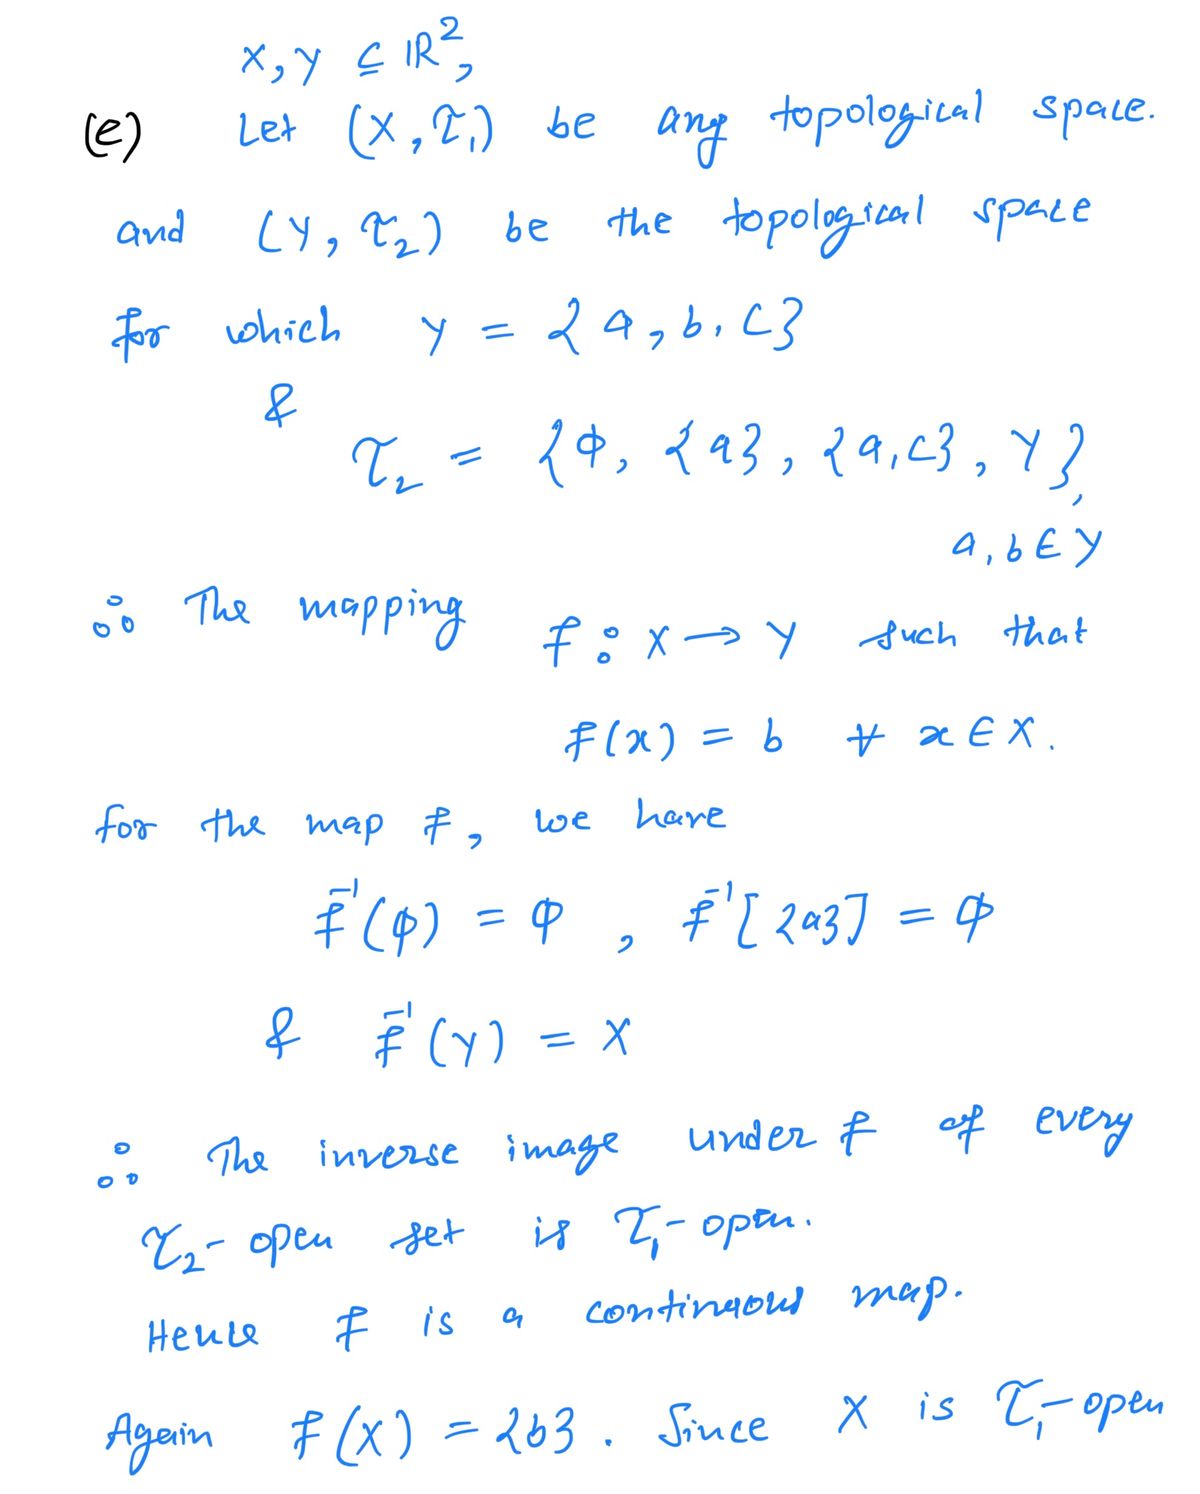 X, Y ⊆ ℝ²,
(e) Let (X, τ₁) be any topological space.
and (Y, τ₂) be the topological space
for which Y = {a, b, c}
& τ₂ = {φ, {a}, {a, c}, Y},
a, b ∈ Y
∴ The mapping f : X → Y such that
f(x) = b ∀ x ∈ X.
for the map f, we have
f⁻¹(φ) = φ , f⁻¹[{a}] = φ
& f⁻¹(Y) = X
∴ The inverse image under f of every
τ₂-open set is τ₁-open.
Hence f is a continuous map.
Again f(X) = {b}. Since X is τ₁-open